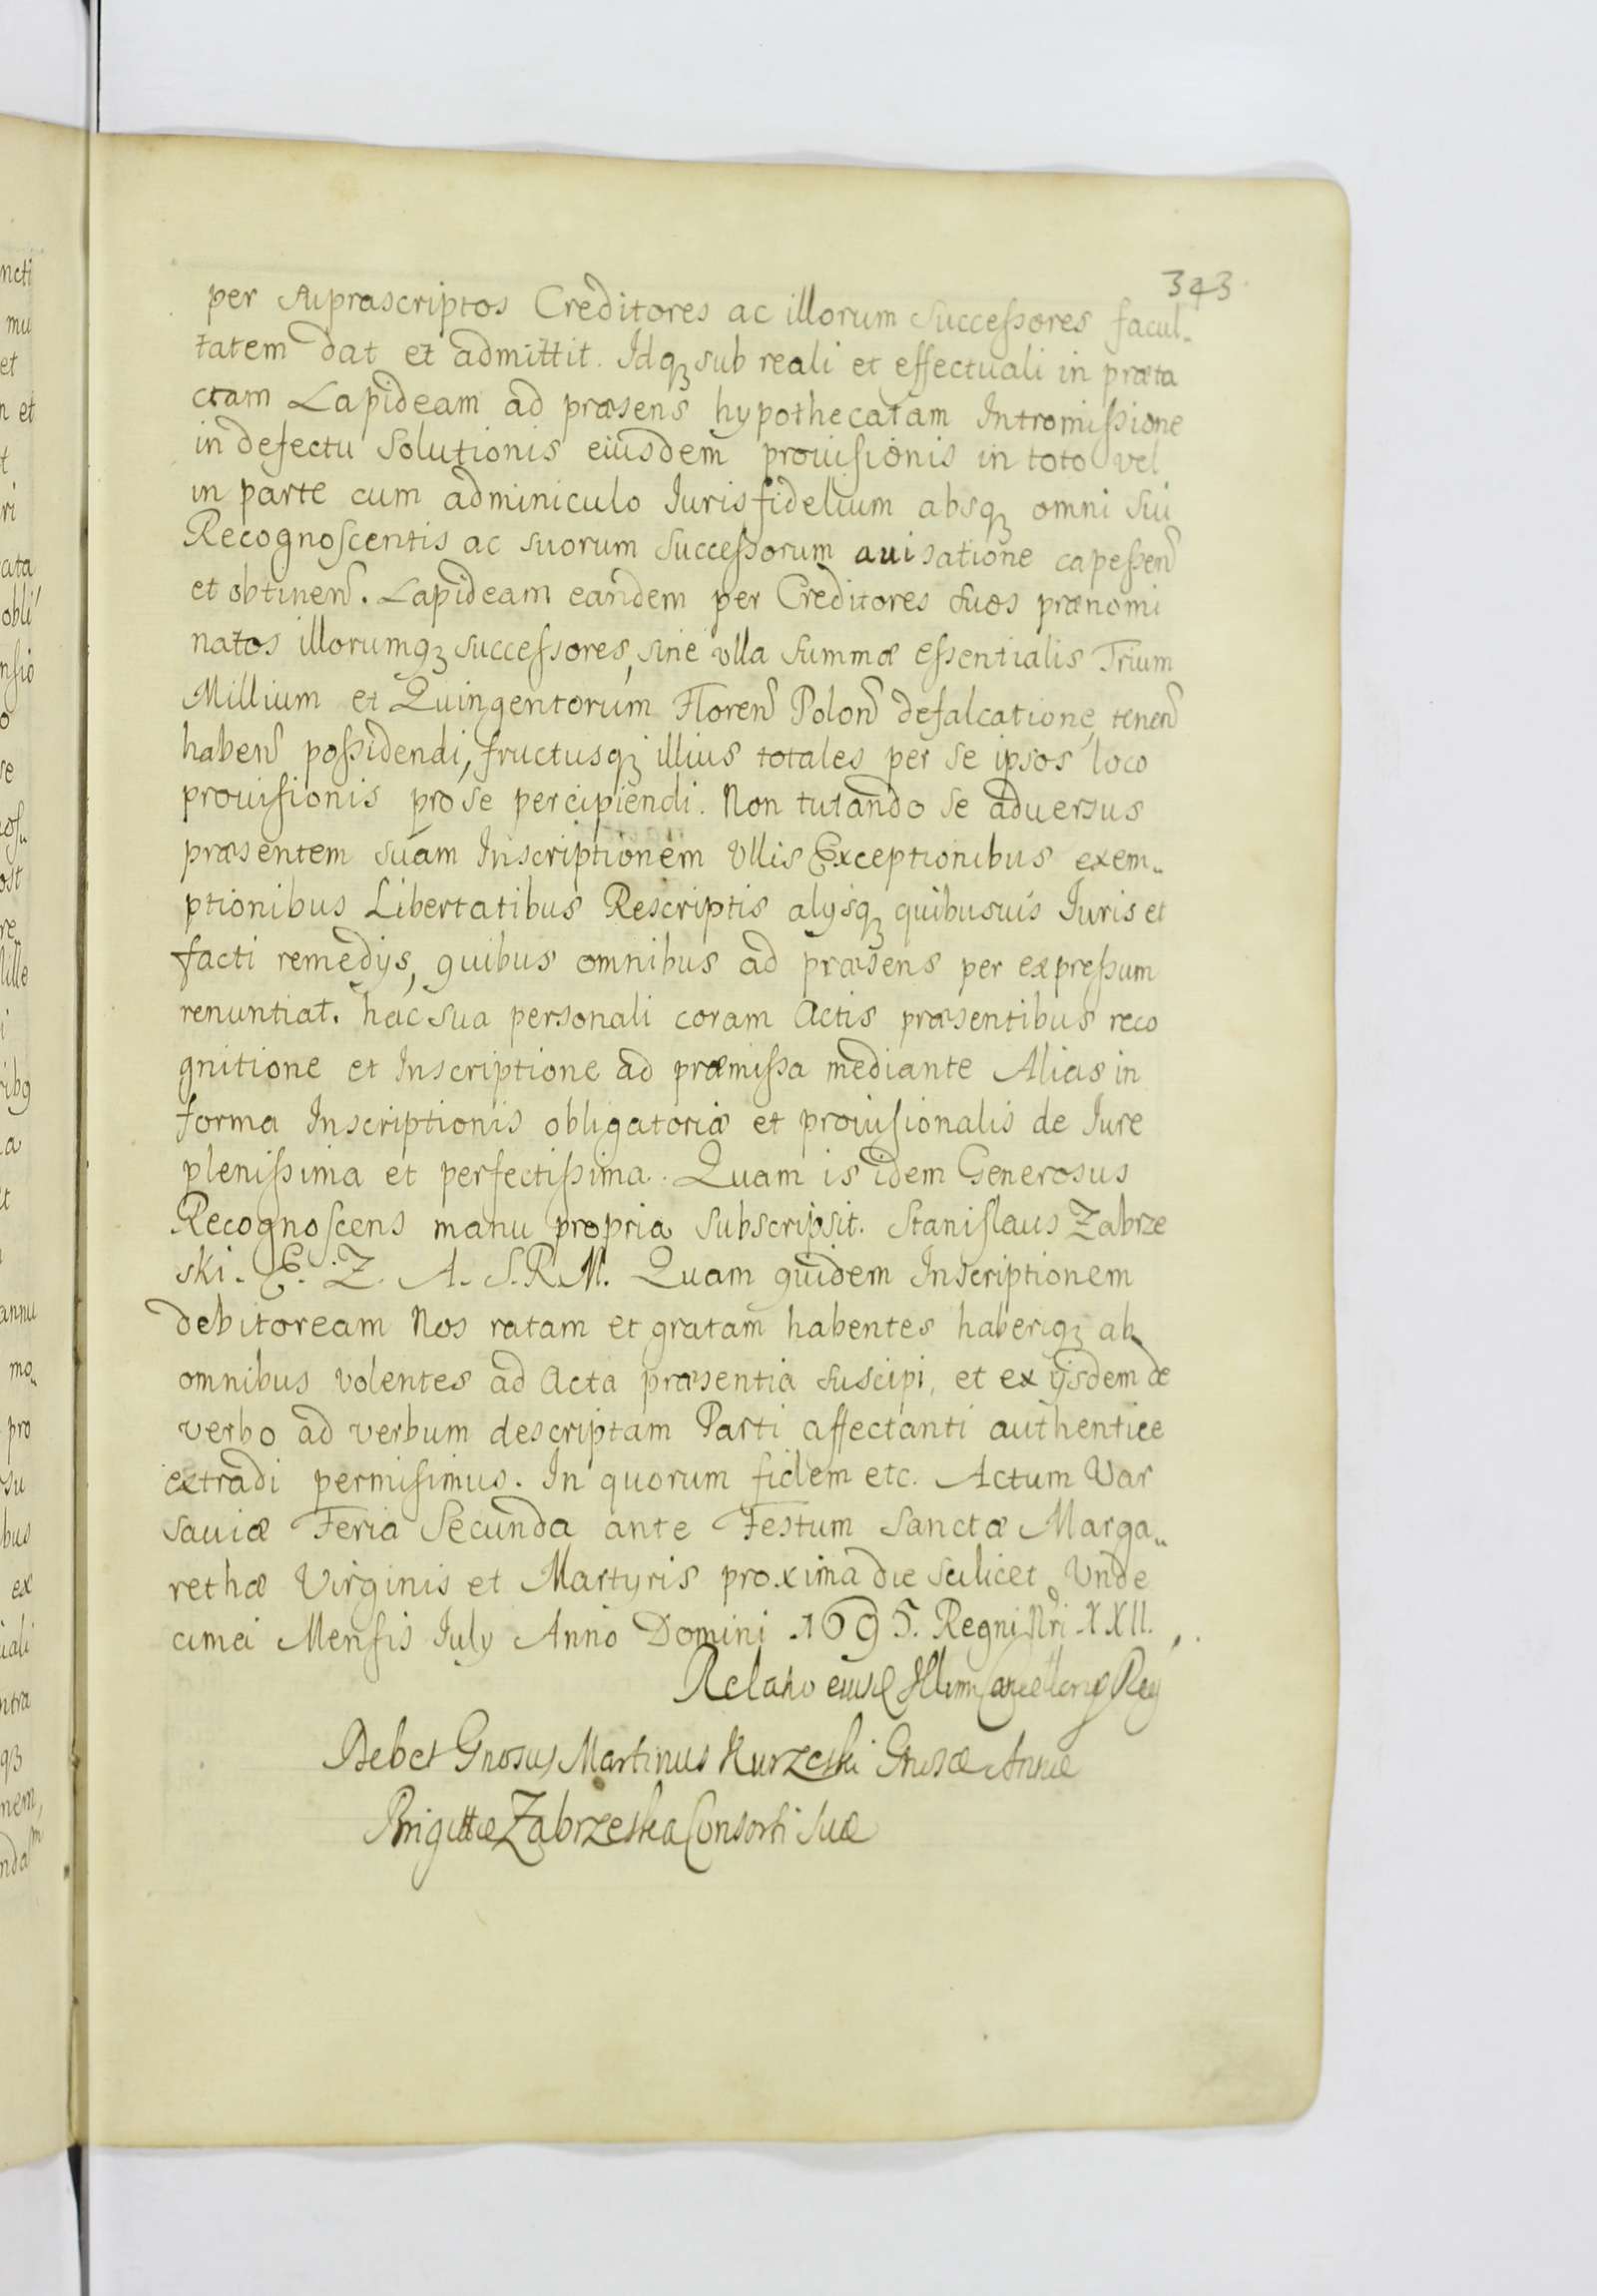 343
per suprascriptos Creditores ac illorum successores facul-
tatem dat et admittit. Idqꝫ sub reali et effectuali in præta
ctam Lapideam ad præsens hypothecatam Intromissione
in defectu solutionis eiusdem prouisionis in toto vel
in parte cum adminiculo Iurisfidelium absqꝫ omni sui
Recognoscentis ac suorum successorum auisatione capessen
et obtinen. Lapideam eandem per Creditores suos prænomi
natos illorumqꝫ successores, sine vlla summæ essentialis Trium
Millium et Quingentorum Floren Polon defalcatione, tenen
haben possidendi, fructusqꝫ illius totales per se ipsos loco
prouisionis pro se percipiendi. Non tutando se aduersus
præsentem suam Inscriptionem Vllis Exceptionibus exem-
ptionibus Libertatibus Rescriptis alysqꝫ quibusuis Iuris et
facti remedys, quibus omnibus ad præsens per expressum
renuntiat. hac sua personali coram Actis præsentibus reco
gnitione et Inscriptione ad præmissa mediante Alias in
forma Inscriptionis obligatoriæ et prouisionalis de Iure
plenissima et perfectissima. Quam is idem Generosus
Recognoscens manu propria subscripsit. Stanislaus Zabrze
ski. E. Z. A. S.R.M. Quam quidem Inscriptionem
debitoream Nos ratam et gratam habentes haberiqꝫ ab
omnibus volentes ad Acta præsentia suscipi, et ex ijsdem de
verbo ad verbum descriptam Parti affectanti authentice
extradi permisimus. In quorum fidem etc. Actum Var
sauiæ Feria Secunda ante Festum Sanctæ Marga-
rethæ Virginis et Martyris proxima die scilicet Vnde
cima Mensis July Anno Domini 1695. Regni Nri XXII.
Relatio eiusd Illmi Cancellarij Reg
Debet Gnosus Martinus Kurzeski Gnosæ Annæ
Brigittæ Zabrzeska Consorti Suæ